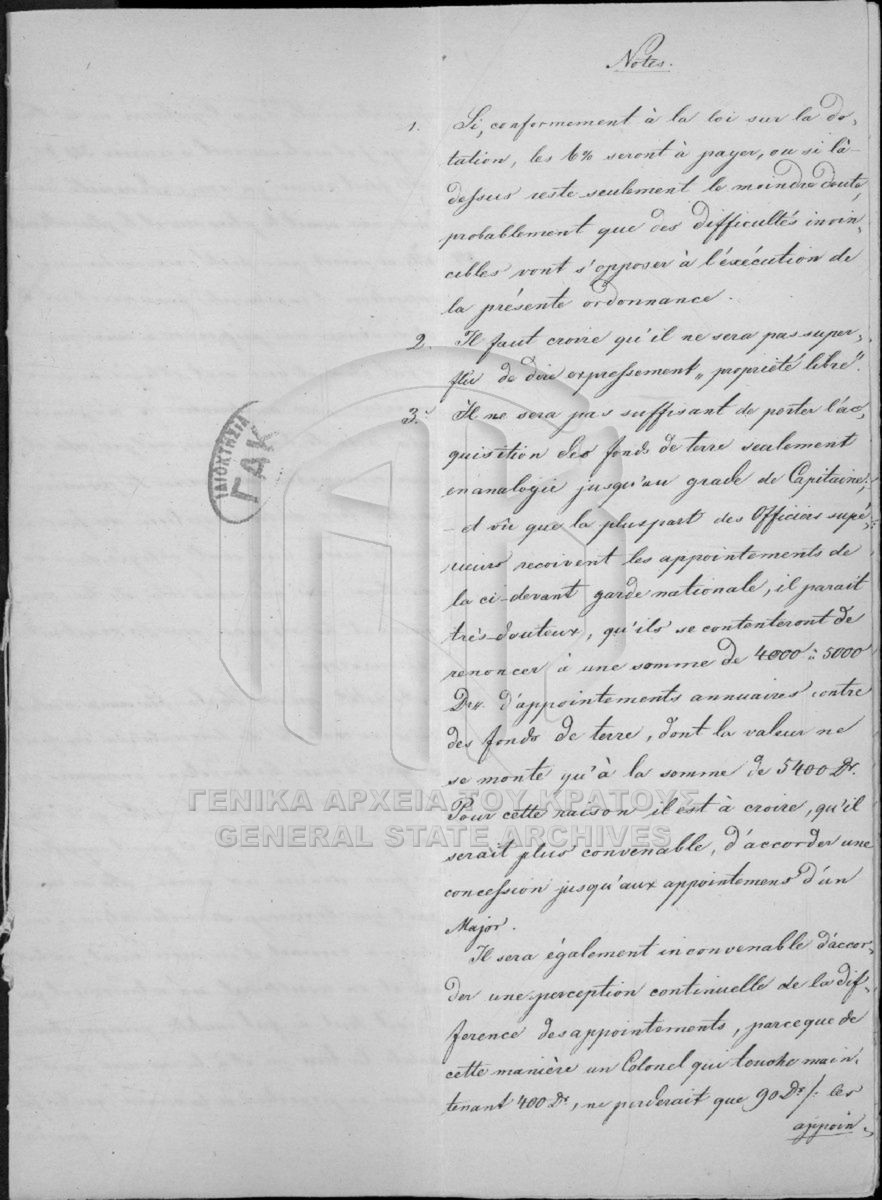 Notes.
1. Si, conformement à la loi sur la do-
tation, les 6% seront à payer, ou si là-
dessus reste seulement le moindre doute,
probablement que des difficultés invin-
cibles vont s'opposer à l'éxécution de
la présente ordonnance.
2. Il faut croire qu'il ne sera pas super-
flu de dire expressement „propriété libre".
3. Il ne sera pas suffisant de porter l'ac-
quisition des fonds de terre seulement
en analogie jusqu'au grade de Capitaine;
- et vû que la pluspart des Officiers supé-
rieurs recoivent les appointements de
la ci-devant garde nationale, il parait
très-douteux, qu'ils se contenteront de
renoncer à une somme de 4000 à 5000
Drs. d'appointements annuaires contre
des fonds de terre, dont la valeur ne
se monte qu'à la somme de 5400 Dr.
Pour cette raison il est à croire, qu'il
serait plus convenable, d'accorder une
concéssion jusqu'aux appointemens d'un
Major.
Il sera également inconvenable d'accor-
der une perception continuelle de la dif-
ference des appointements, parceque de
cette manière un Colonel qui touche main-
tenant 400 Dr., ne perderait que 90 Dr /: les
appoin-
ΙΔΙΟΚΤΗΣΙΑ
ΓΑΚ
ΓΕΝΙΚΑ ΑΡΧΕΙΑ ΤΟΥ ΚΡΑΤΟΥΣ
GENERAL STATE ARCHIVES